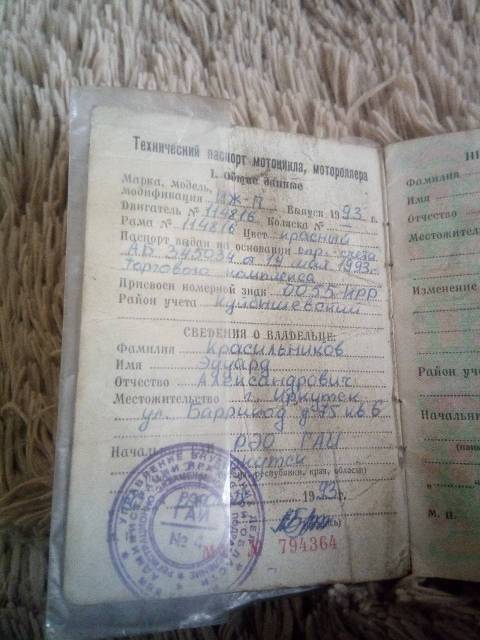 Технический паспорт мотоцикла, мотороллера
1. Общие данные
Марка, модель,
модификация ИЖ-П Выпуск 1993 г.
Двигатель № 114816 Коляска №
Рама № 114816 Цвет красный
Паспорт выдан на основании спр.-счета
АБ 345034 от 14 мая 1993г.
торгового комплекса
Присвоен номерной знак 0055 ИРР
Район учета Куйбышевский
СВЕДЕНИЯ О ВЛАДЕЛЬЦЕ:
Фамилия Красильников
Имя Эдуард
Отчество Александрович
Местожительство г. Иркутск
ул. Баррикад д 75 кв 6
Начальник РЭО ГАИ
республики, края, области)
УПРАВЛЕНИЕ
РЭО
ГАИ
№
1993г.
№ 794364
Ш
Фамилия
Имя
Отчество
Местожитель
Изменение
Район уч
Начальни
М. П.